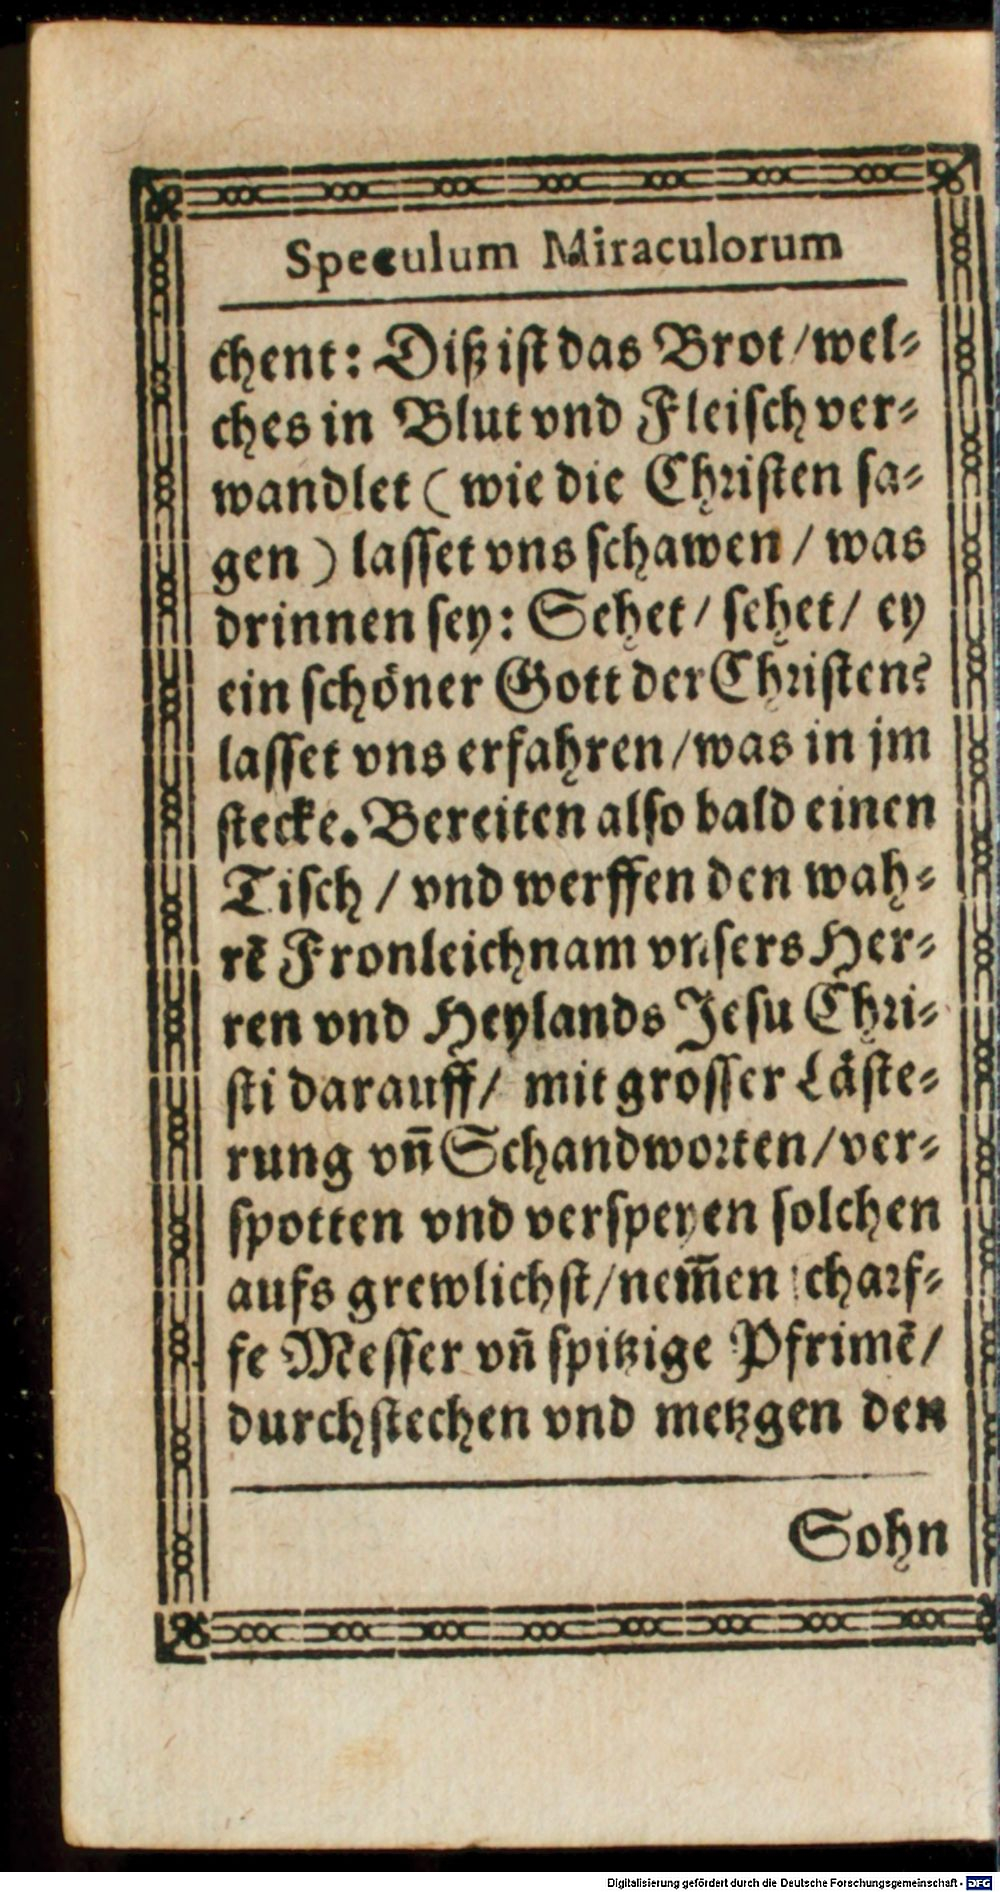 Speculum Miraculorum
chent: Diß ist das Brot/wel⸗
ches in Blut vnd Fleisch ver⸗
wandlet (wie die Christen sa⸗
gen) lasset vns schawen / was
drinnen sey: Sehet/ sehet/ ey
ein schöner Gott der Christen?
lasset vns erfahren/was in jm
stecke. Bereiten also bald einen
Tisch / vnd werffen den wah⸗
rē Fronleichnam vnsers Her⸗
ren vnd Heylands Jesu Chri⸗
sti darauff/ mit grosser Läste⸗
rung vn̄ Schandworten/ver⸗
spotten vnd verspeyen solchen
aufs grewlichst/nem̄en scharf⸗
fe Messer vn̄ spitzige Pfrimē/
durchstechen vnd metzgen den
Sohn
Digitalisierung gefördert durch die Deutsche Forschungsgemeinschaft - DFG